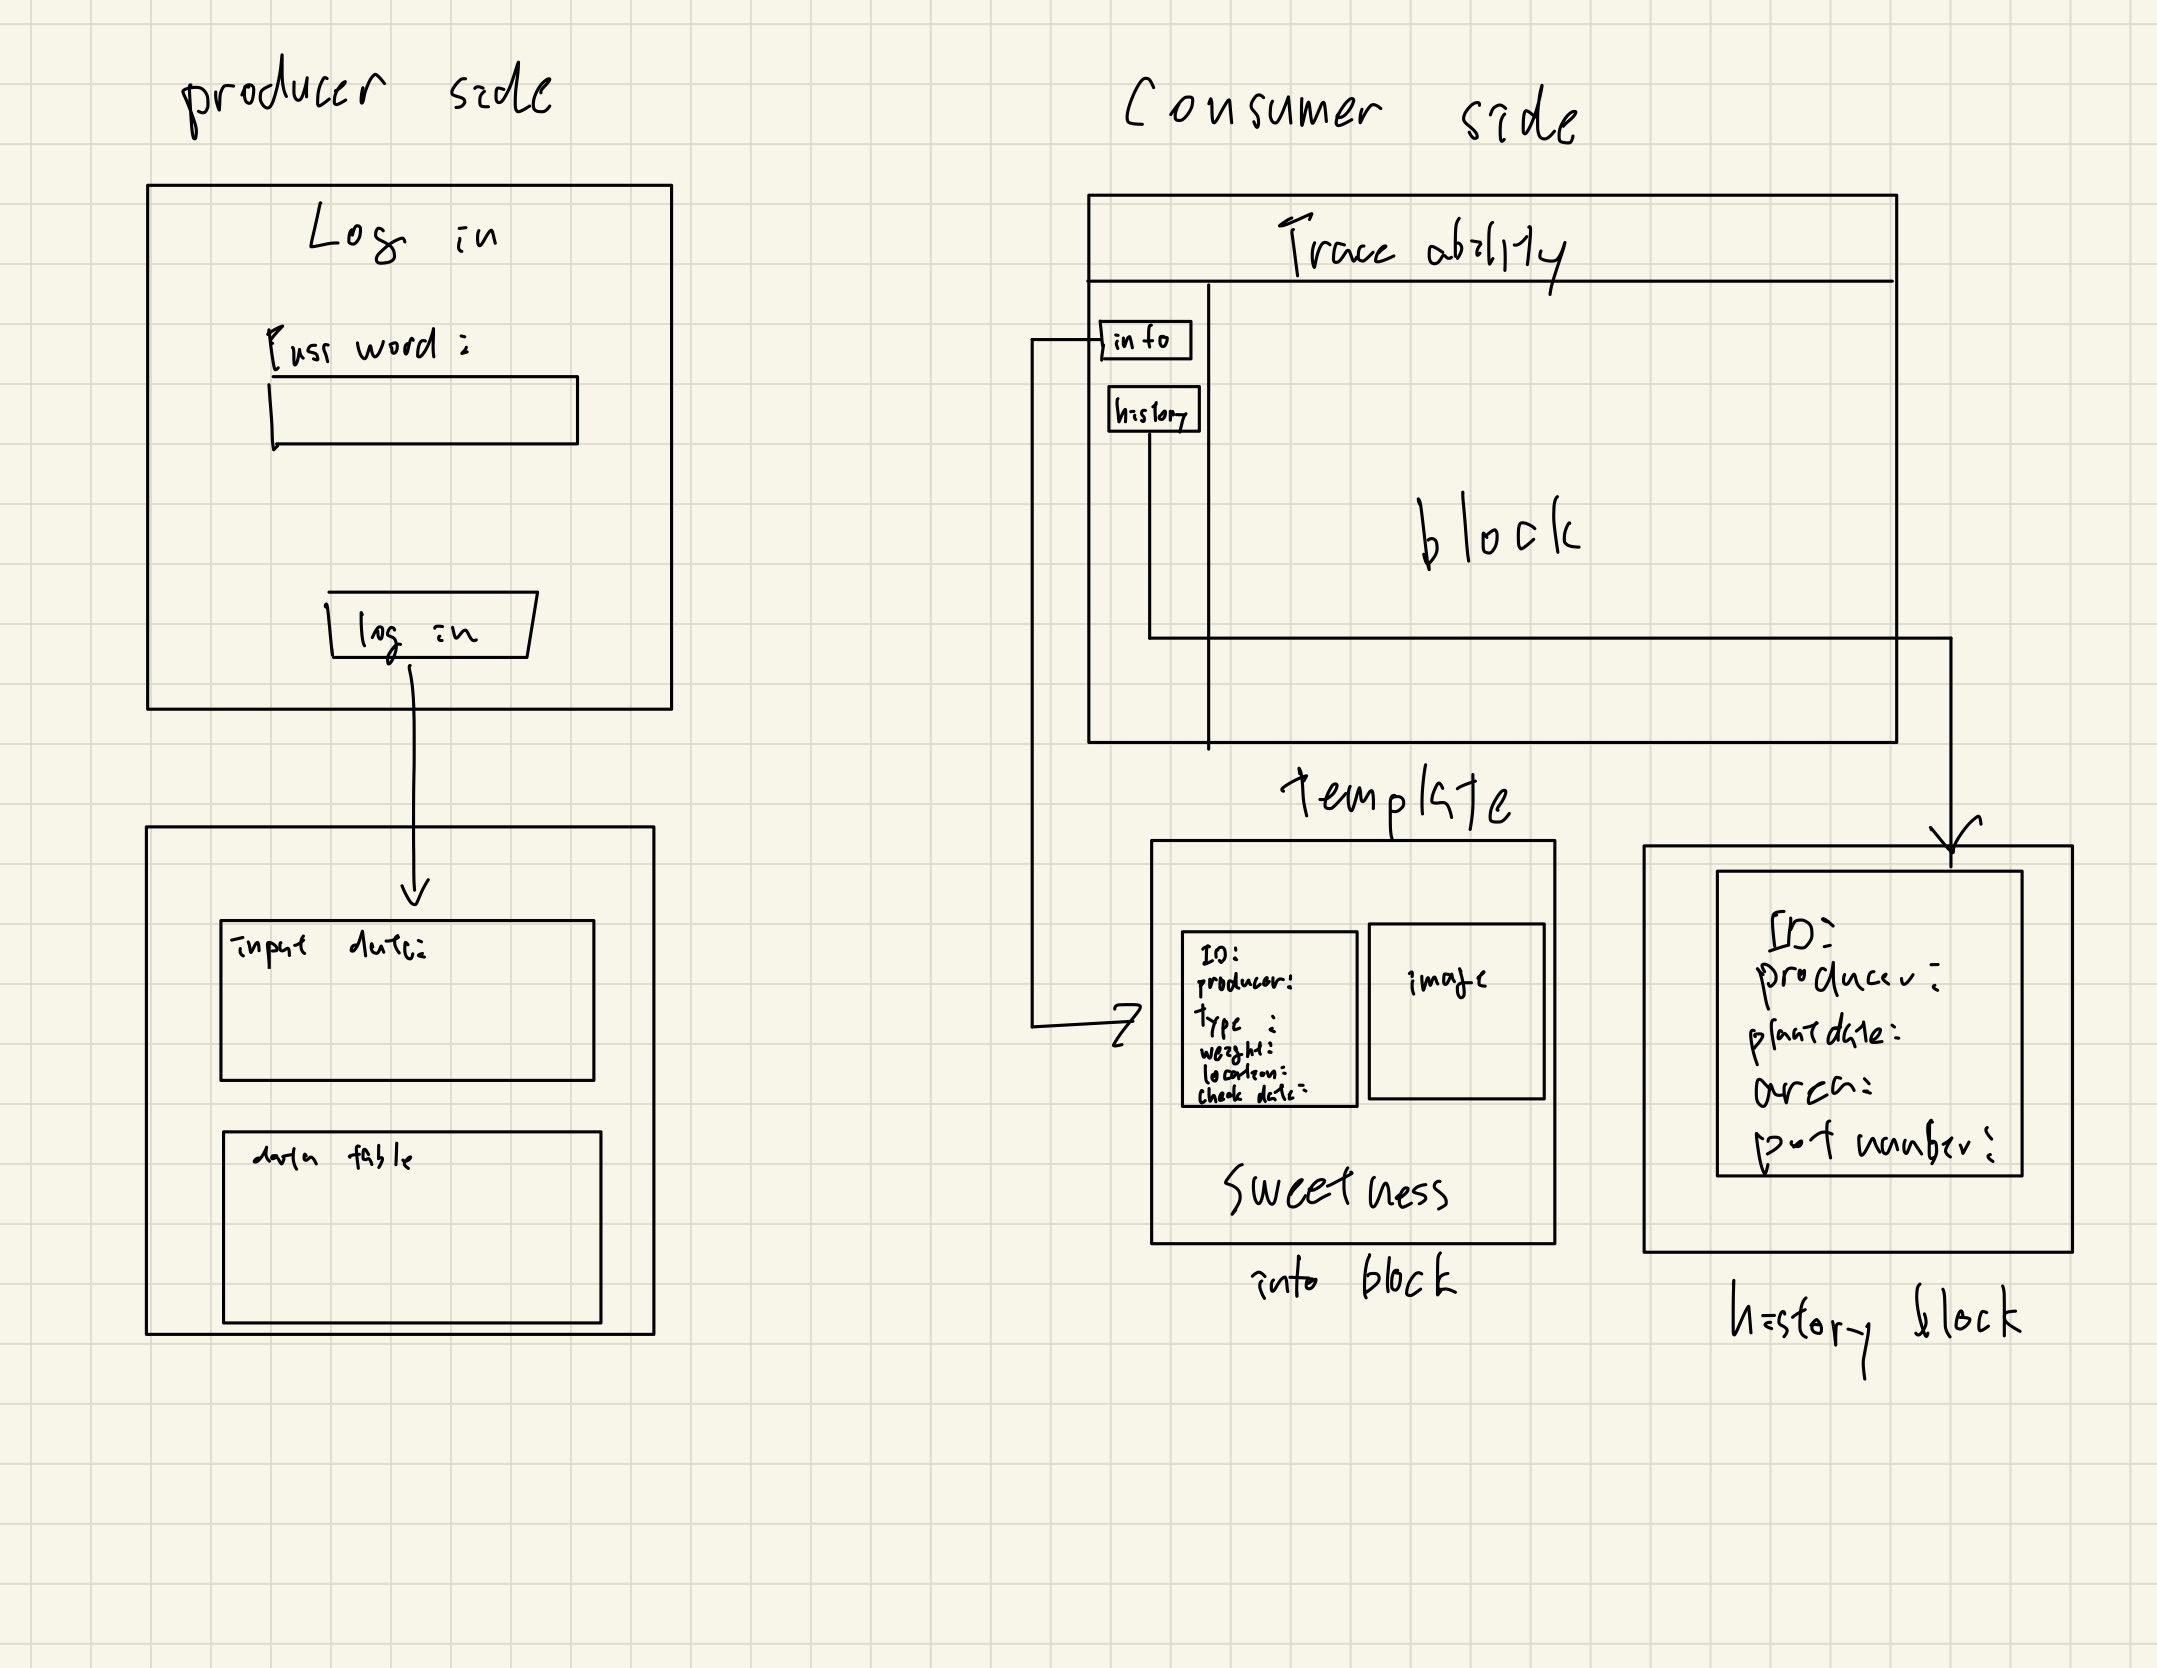 producer side
Log in
Password:
log in
input data:
data table
Consumer side
Trace ability
info
history
block
template
ID:
producer:
type:
weight:
location:
check date:
image
Sweetness
info block
ID:
producer:
plant date:
area:
pot number:
history block